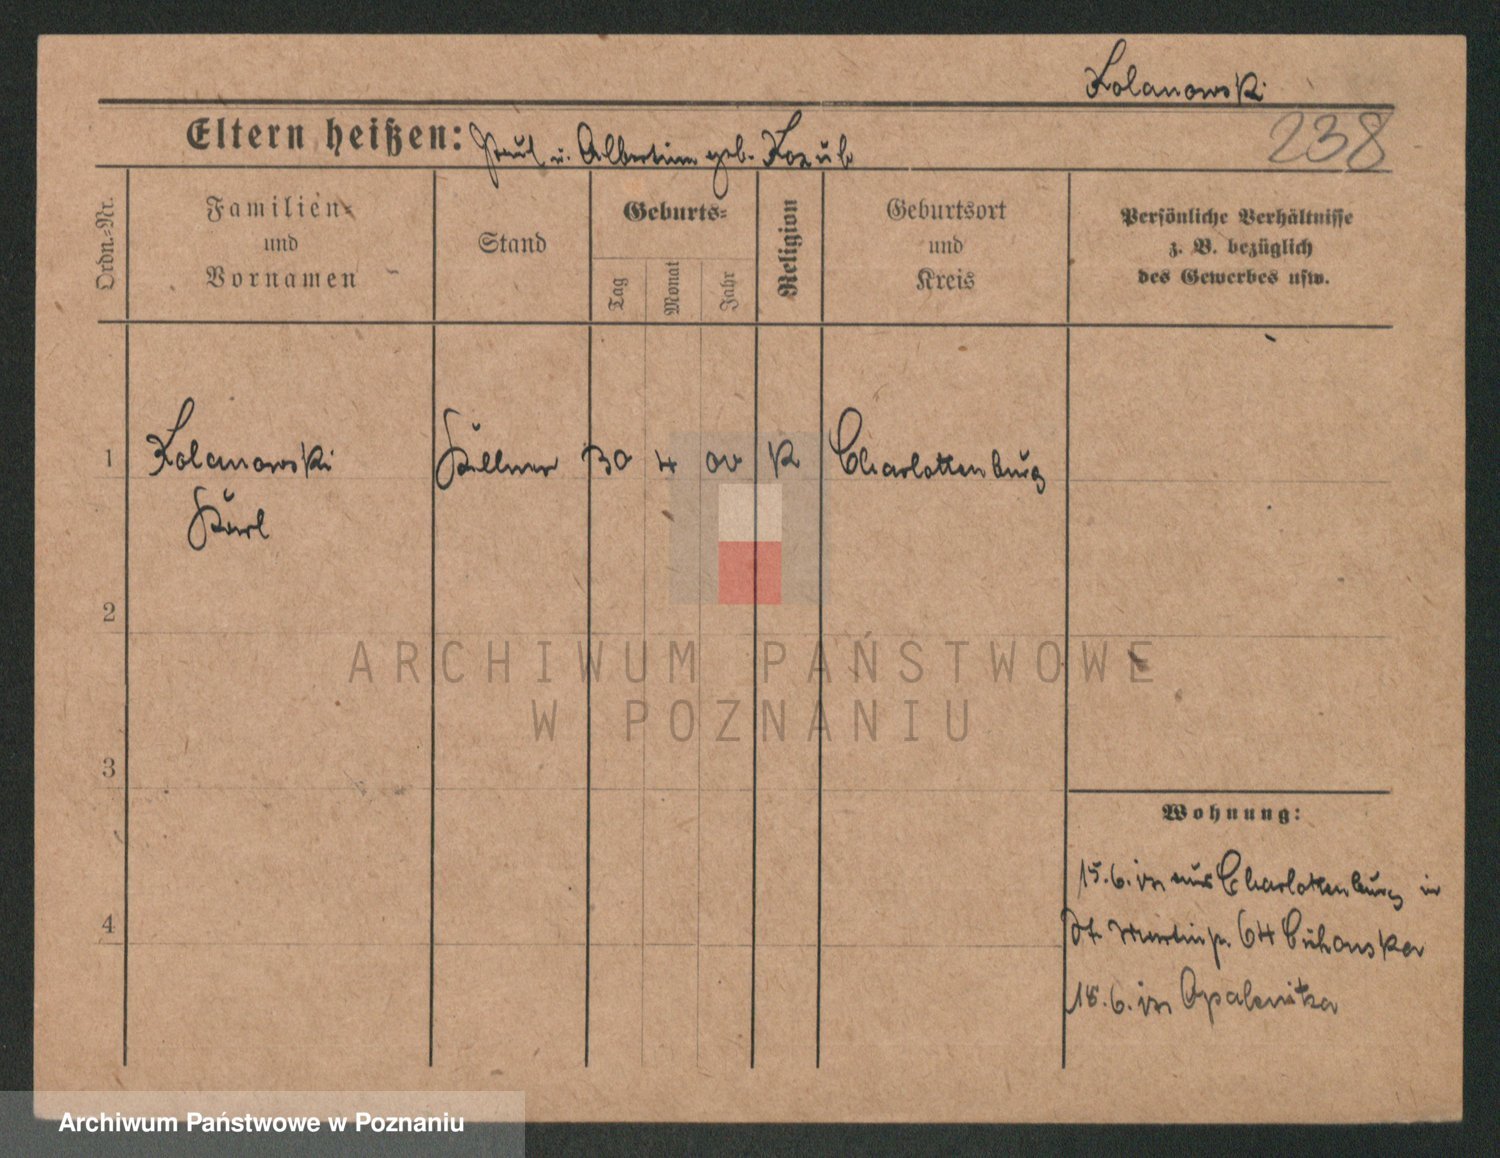 Kolanowski
238
Eltern heißen: Paul u. Albertine geb. Kozub
Ordn.=Nr.
Familien=
und
Vornamen
Stand
Geburts=
Tag
Monat
Jahr
Religion
Geburtsort
und
Kreis
Persönliche Verhältnisse
z. B. bezüglich
des Gewerbes usw.
1 Kolanowski Kellner 30 4 00 K Charlottenburg
Karl
2
ARCHIWUM PAŃSTWOWE
W POZNANIU
3
Wohnung:
15.6. aus Charlottenburg in
St. Martinstr. 64
4
18.6. Opalenitza
Archiwum Państwowe w Poznaniu